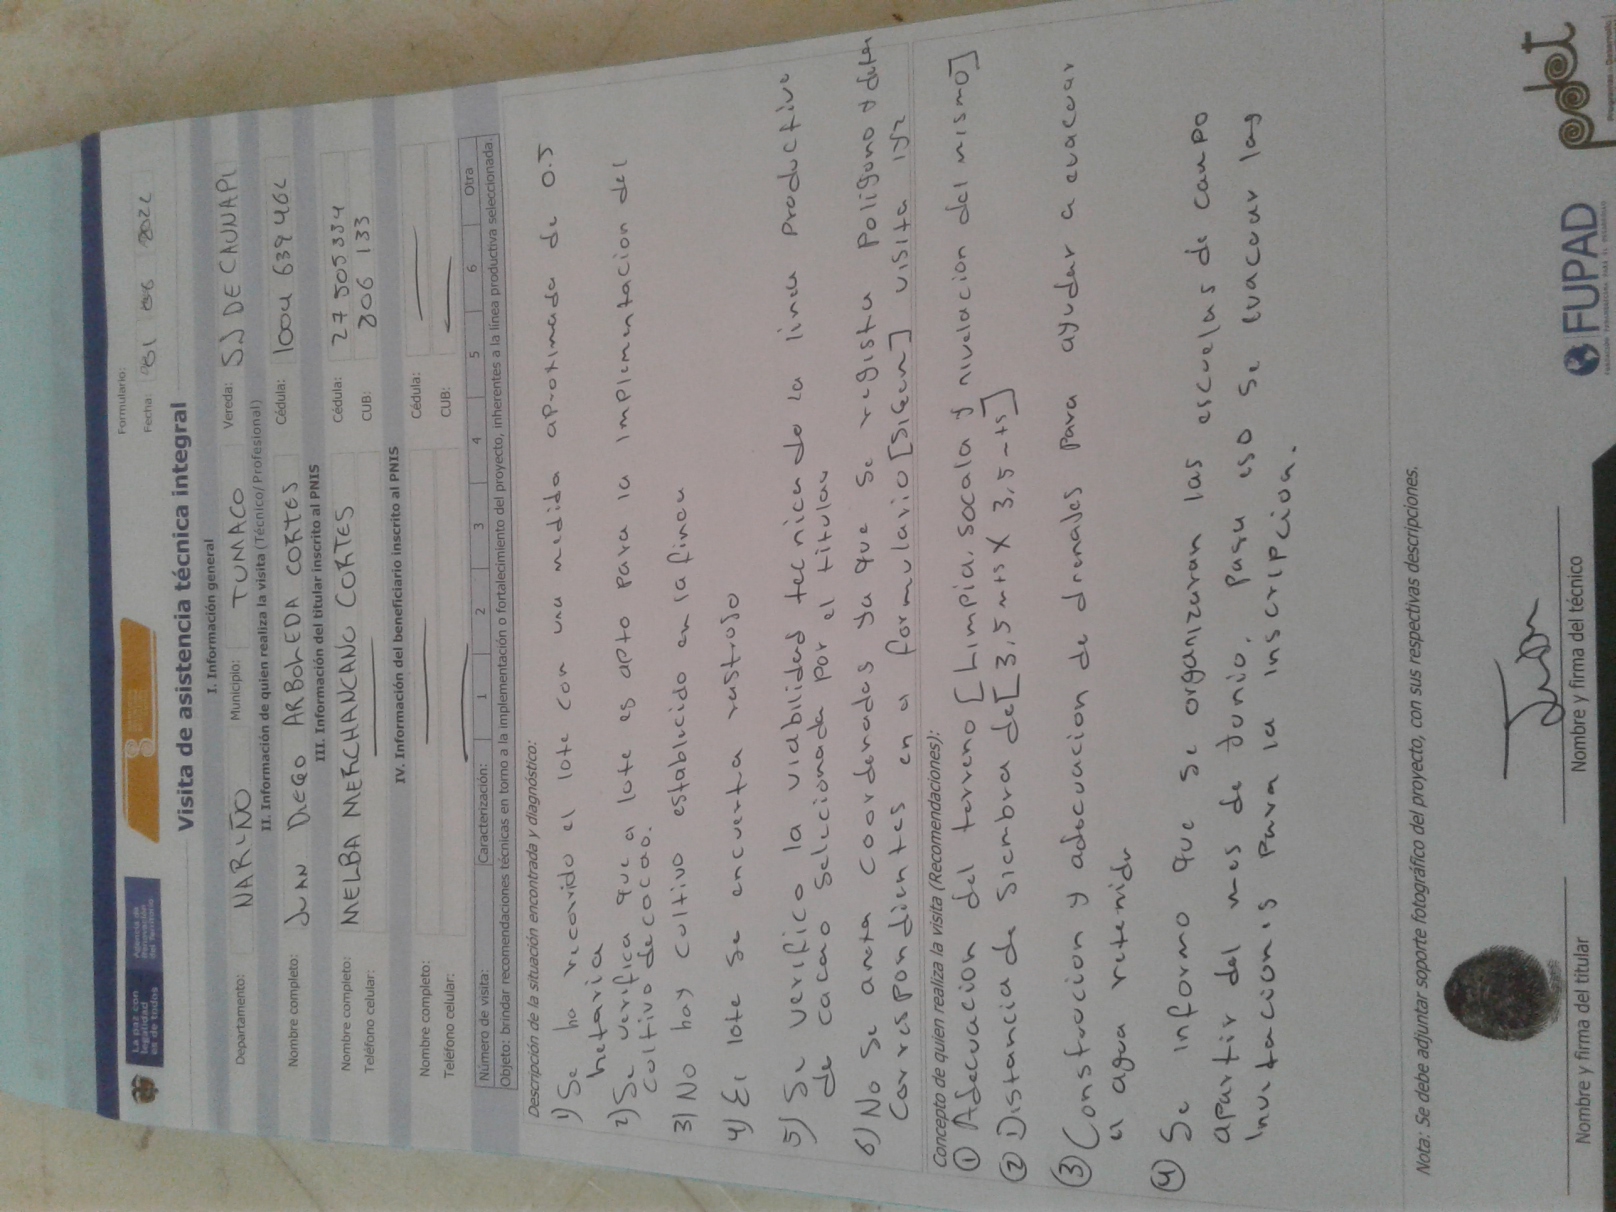 La paz con
legalidad
es de todos
Agencia de
Renovación
del Territorio
Formulario:
Fecha: 2022
Visita de asistencia técnica integral
I. Información general
Departamento: NARIÑO Municipio: TUMACO Vereda: SJ DE CAUNAPI
II. Información de quien realiza la visita (Técnico/Profesional)
Nombre completo: JUAN DIEGO ARBOLEDA CORTES Cédula: 1004 639 462
III. Información del titular inscrito al PNIS
Nombre completo: MELBA MERCHANCANO CORTES Cédula: 27 505 334
Teléfono celular: CUB: 306 133
IV. Información del beneficiario inscrito al PNIS
Nombre completo: Cédula:
Teléfono celular: CUB:
Número de visita: Caracterización: 1 2 3 4 5 6 Otra
Objeto: brindar recomendaciones técnicas en torno a la implementación o fortalecimiento del proyecto, inherentes a la línea productiva seleccionada.
Descripción de la situación encontrada y diagnóstico:
1) Se ha recorrido el lote con una medida aproximada de 0.5
hetaria
2) Se verifica que el lote es apto para la implementacion del
cultivo de cacao.
3) No hay cultivo establecido en la finca
4) El lote se encuentra rastrojo
5) Se verifico la viabilidad tecnica de la linea productiva
de cacao seleccionada por el titular
6) No se anota coordenadas ya que se registra Poligono y
correspondientes en el formulario [sigen] visita 1y2
Concepto de quien realiza la visita (Recomendaciones):
① Adecuación del terreno [Limpia, socala y nivelacion del mismo]
② Distancia de siembra de [3,5 mts X 3,5 mts]
③ Construcion y adecuacion de drenajes para ayudar a evacuar
el agua retenida
④ Se informo que se organizaran las escuelas de campo
apartir del mes de Junio, para eso se evacuar las
Invitaciones para la inscripcion.
Nota: Se debe adjuntar soporte fotográfico del proyecto, con sus respectivas descripciones.
Juan
Nombre y firma del titular Nombre y firma del técnico
FUPAD
pdet